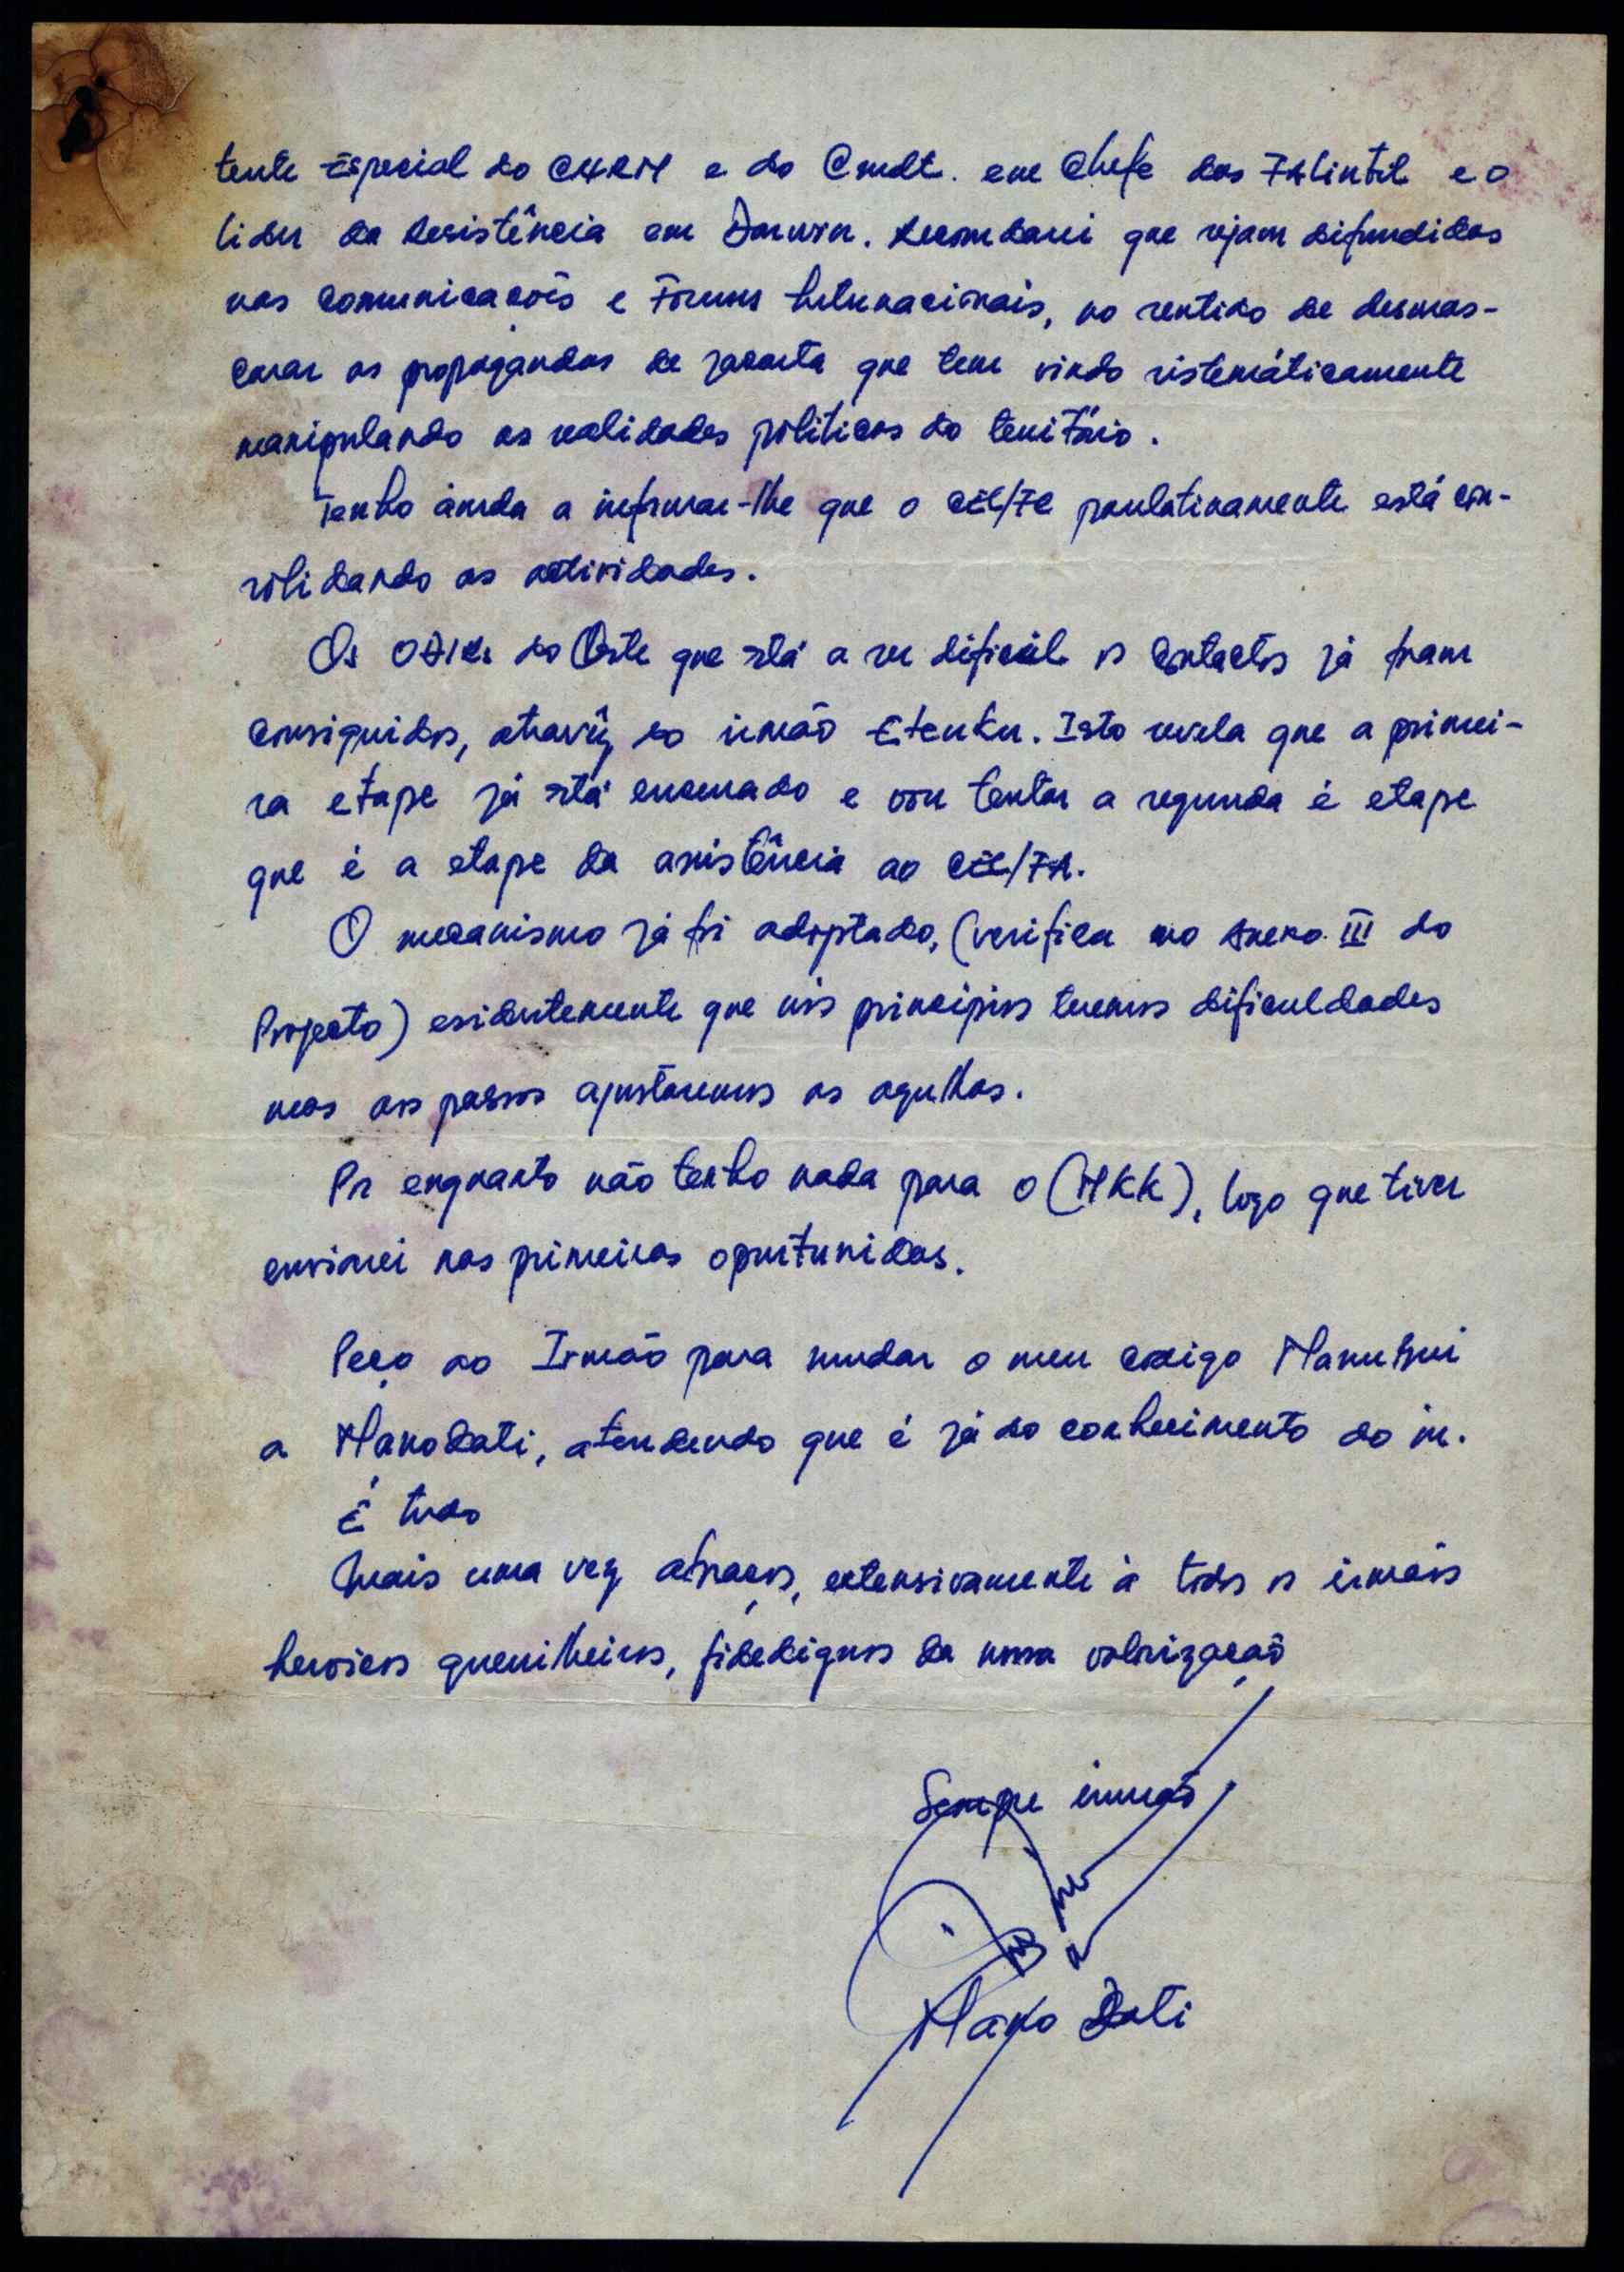 tente Especial do CNRM e do Cmdt. em Chefe das FALintil e o
lider da Resistência em Darwin. Recomdarei que sejam difundidas
nas comunicações e Foruns Internacionais, no sentido de desmas-
carar as propagandas de Jacarta que tem vindo sistemáticamente
manipulando as realidades politicas do território.
Tenho ainda a informar-lhe que o CEL/FC paulatinamente está con-
solidando as actividades.
Os do Oeste que stá a ser dificil os contactos já foram
consiguidos, através do irmão Eteuku. Isto revela que a primei-
ra etape já stá encerrado e vou tentar a segunda é etape
que é a etape da assistência ao CEL/FA.
O mecanismo já foi adoptado, (verifica no Anexo III do
Projecto) evidentemente que nós principios teremos dificuldades
mas aos passos ajustaremos as agulhas.
Por enquanto não tenho nada para o (HKK), logo que tiver
enviarei nas primeiras oportunidas.
Peço ao Irmão para mudar o meu codigo
a Mano Dati, atendendo que é já do conhecimento do in.
É tudo
Mais uma vez abraços, extensivamente à todos os irmãos
heroicos guerrilheiros, fidedignos da nossa valorização
Sempre irmão
Mano Dati